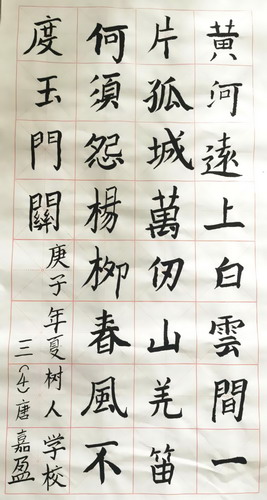 黃河遠上白雲間一
片孤城萬仞山羌笛
何須怨楊柳春風不
度玉門關
庚子年夏树人学校
三(4)唐嘉盈